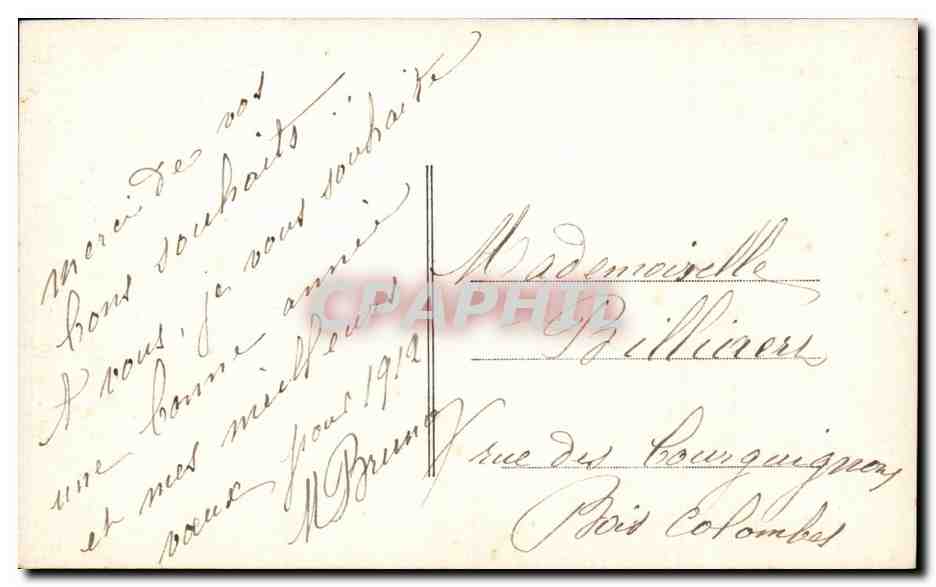 merci de vos
bons souhaits !
A vous, je vous souhaite
une bonne année
et mes meilleurs
vœux pour 1912
M Bruno
Mademoiselle
rue des Bourguignons
Bois Colombes
CPAPHIL